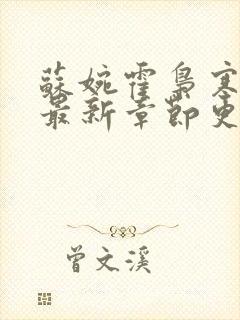 蘇婉霍梟寒
最新章節更
曾文溪